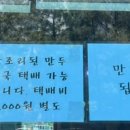 조리된 만두
국 택배 가능
니다 택배비
,000원 별도
만
됩